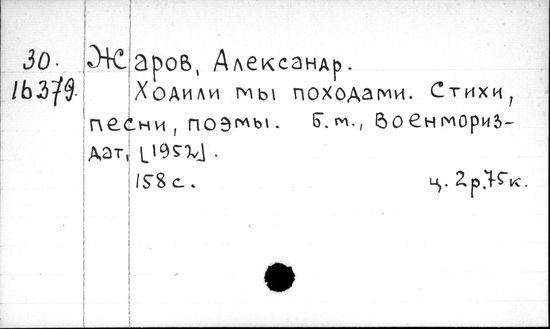 30. Жаров, Александр.
16379. Ходили мы походами. Стихи,
песни, поэмы. Б.м., Военмориз-
дат, [1952].
158 с. ц. 2р.75к.